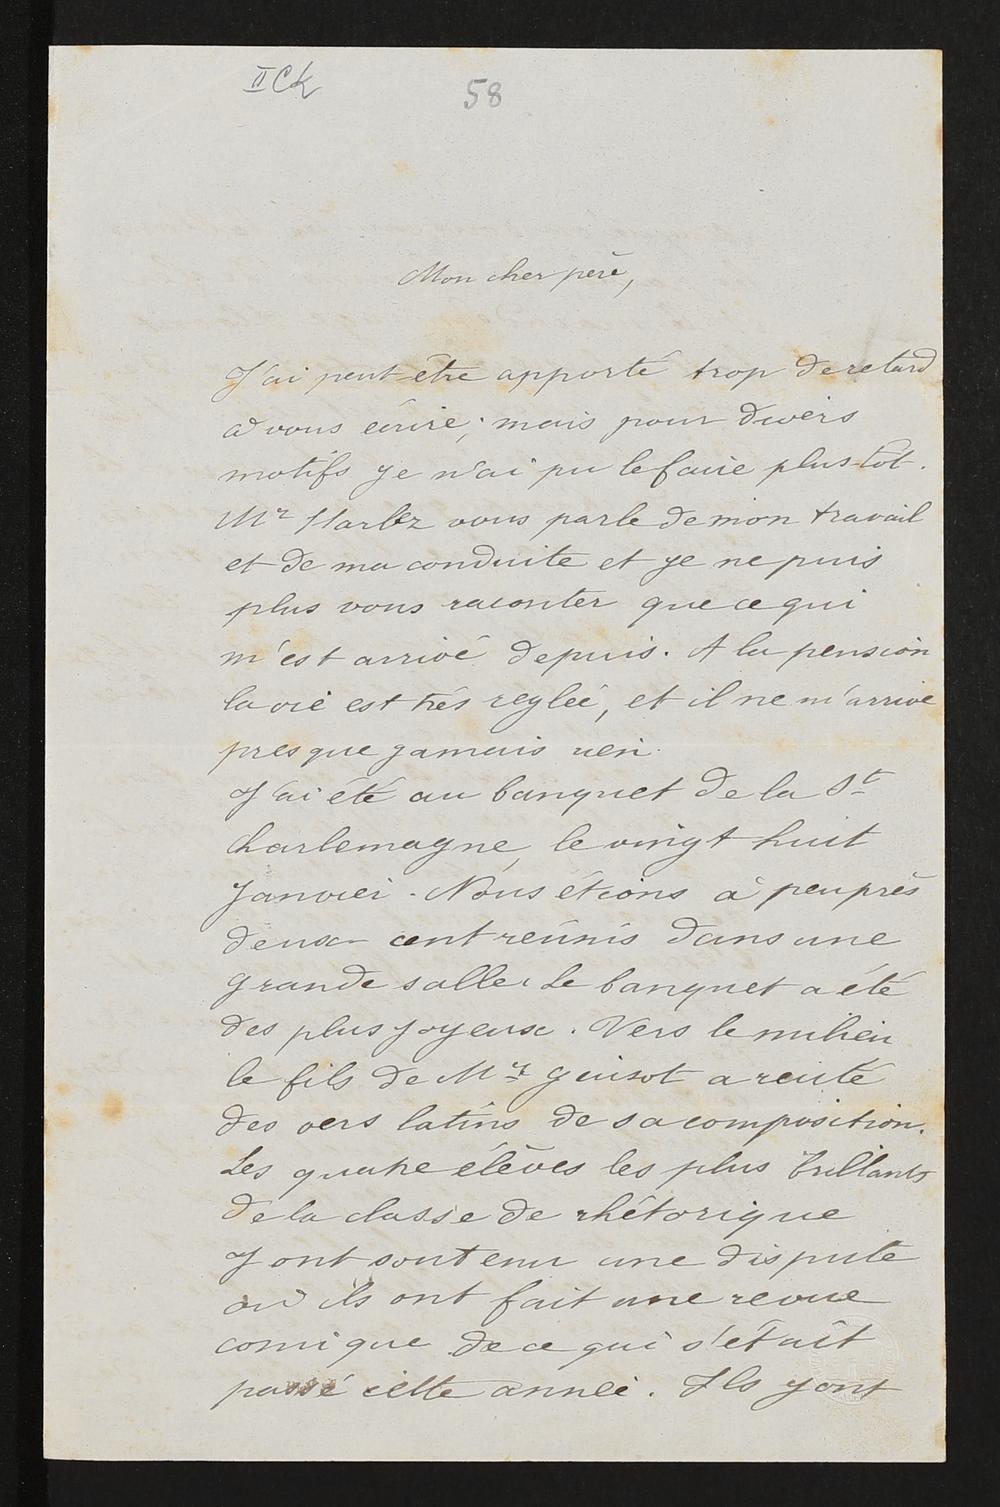 II Ck
58
Mon cher père,
J'ai peut-être apporté trop de retard
à vous écrire; mais pour divers
motifs je n'ai pu le faire plus tôt.
Mr Harlez vous parle de mon travail
et de ma conduite et je ne puis
plus vous raconter que ce qui
m'est arrivé depuis. A la pension
la vie est très reglée, et il ne m'arrive
presque jamais rien.
J'ai été au banquet de la St
Charlemagne, le vingt huit
Janvier. Nous étions à peu près
deux cent réunis dans une
grande salle. Le banquet a été
des plus joyeux. Vers le milieu
le fils de Mr Guizot a recité
des vers latins de sa composition.
Les quatre élèves les plus brillants
de la classe de rhétorique
y ont soutenu une dispute
où ils ont fait une revue
comique de ce qui s'était
passé cette année. Ils y ont